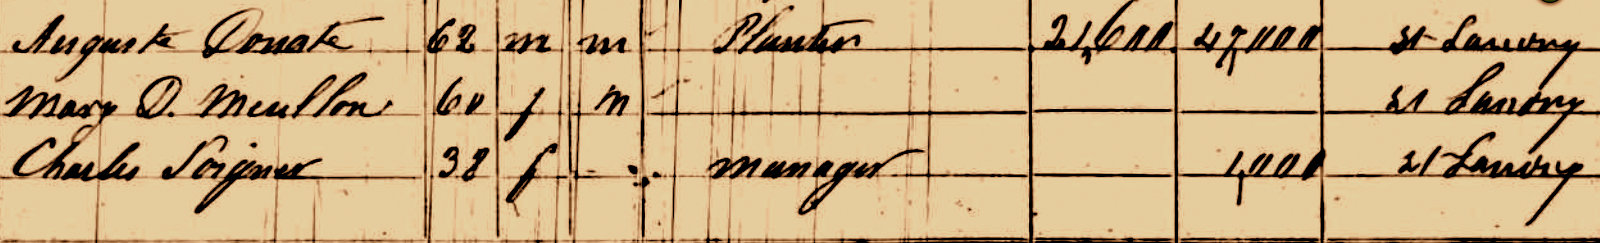 Auguste Donate 62 m m Planter 21,600 47,000 St Landry
Mary D. Meullon 60 f m St Landry
Charles Soigner 38 f manager 1,000 St Landry